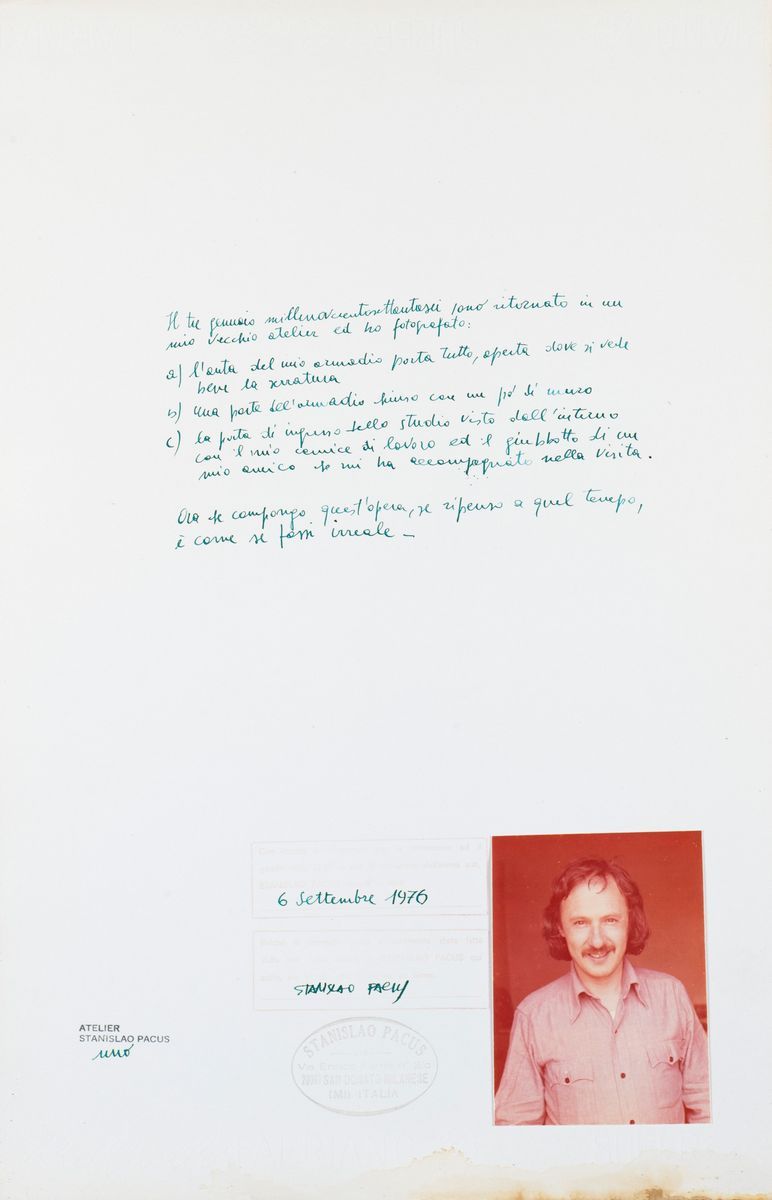 Il tre gennaio millenovecentosettantasei sono ritornato in un
mio vecchio atelier ed ho fotografato:
a) l'anta del mio armadio porta tutto, aperta dove si vede
bene la serratura
b) una parte dell'armadio chiuso con un po' di muro
c) la porta di ingresso dello studio visto dall'interno
con il mio camice di lavoro ed il giubbotto di un
mio amico che mi ha accompagnato nella visita.
Ora che compongo quest'opera, se ripenso a quel tempo,
è come se fossi irreale —
6 Settembre 1976
STANISLAO PACUS
ATELIER
STANISLAO PACUS
uno
STANISLAO PACUS
SAN DONATO MILANESE
(MI) ITALIA